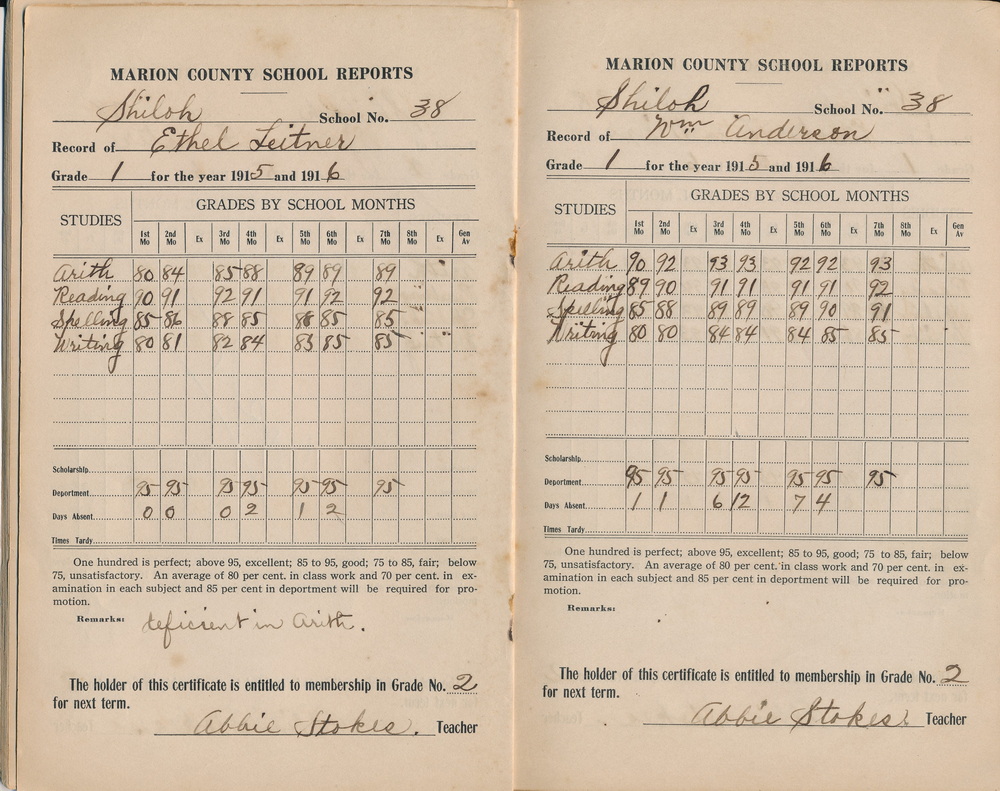 MARION COUNTY SCHOOL REPORTS
Shiloh School No. 38
Record of Ethel Leitner
Grade 1 for the year 1915 and 1916
STUDIES GRADES BY SCHOOL MONTHS
1st Mo 2nd Mo Ex 3rd Mo 4th Mo Ex 5th Mo 6th Mo Ex 7th Mo 8th Mo Ex Gen Av
Arith 80 84 85 88 89 89 89
Reading 90 91 92 91 91 92 92
Spelling 85 86 88 85 86 85 85
Writing 80 81 82 84 83 85 85
Scholarship
Department 95 95 95 95 95 95 95
Days Absent 0 0 0 2 1 2
Times Tardy
One hundred is perfect; above 95, excellent; 85 to 95, good; 75 to 85, fair; below
75, unsatisfactory. An average of 80 per cent. in class work and 70 per cent. in ex-
amination in each subject and 85 per cent in deportment will be required for pro-
motion.
Remarks: deficient in Arith.
The holder of this certificate is entitled to membership in Grade No. 2
for next term.
Abbie Stokes. Teacher
MARION COUNTY SCHOOL REPORTS
Shiloh School No. 38
Record of Wm Anderson
Grade 1 for the year 1915 and 1916
STUDIES GRADES BY SCHOOL MONTHS
1st Mo 2nd Mo Ex 3rd Mo 4th Mo Ex 5th Mo 6th Mo Ex 7th Mo 8th Mo Ex Gen Av
Arith 90 92 93 93 92 92 93
Reading 89 90 91 91 91 91 92
Spelling 85 88 89 89 89 90 91
Writing 80 80 84 84 84 85 85
Scholarship
Department 95 95 95 95 95 95 95
Days Absent 1 1 6 12 7 4
Times Tardy
One hundred is perfect; above 95, excellent; 85 to 95, good; 75 to 85, fair; below
75, unsatisfactory. An average of 80 per cent. in class work and 70 per cent. in ex-
amination in each subject and 85 per cent in deportment will be required for pro-
motion.
Remarks:
The holder of this certificate is entitled to membership in Grade No. 2
for next term.
Abbie Stokes. Teacher